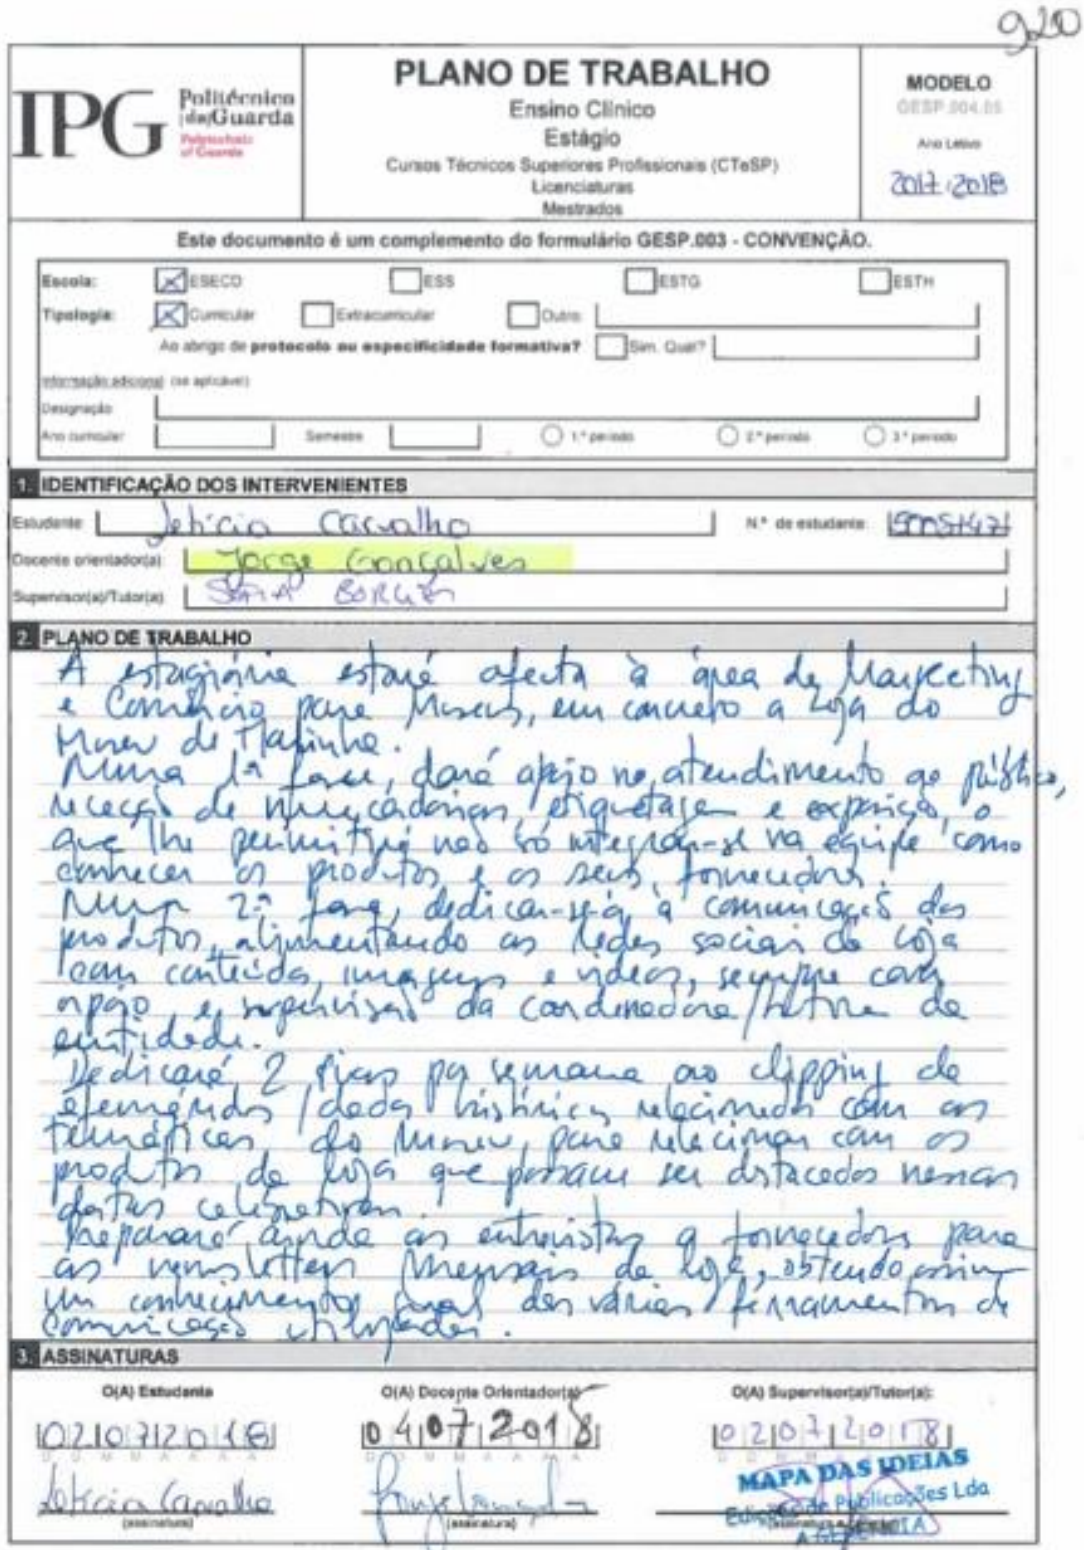 920
IPG Politécnico da Guarda
Polytechnic of Guarda
PLANO DE TRABALHO
Ensino Clínico
Estágio
Cursos Técnicos Superiores Profissionais (CTeSP)
Licenciaturas
Mestrados
MODELO
GESP.004.05
Ano Letivo
2017/2018
Este documento é um complemento do formulário GESP.003 - CONVENÇÃO.
Escola: ESECD ESS ESTG ESTH
Tipologia: Curricular Extracurricular Outro:
Ao abrigo de protocolo ou especificidade formativa? Sim. Qual?
Informação adicional (se aplicável)
Designação
Ano curricular Semestre 1.º período 2.º período 3.º período
1. IDENTIFICAÇÃO DOS INTERVENIENTES
Estudante: Letícia Carvalho N.º de estudante:
Docente orientador(a): Jorge Gonçalves
Supervisor(a)/Tutor(a): Sofia Borges
2. PLANO DE TRABALHO
A estagiária estará afecta à área de Marketing
e Comércio para Museus, em concreto a loja do
Museu de Marinha.
Numa 1ª fase, dará apoio no atendimento ao público,
receção de mercadorias, etiquetagem e exposição, o
que lhe permitirá não só integrar-se na equipe como
conhecer os produtos e os seus fornecedores.
Numa 2ª fase, dedicar-se-á à comunicação dos
produtos, alimentando as redes sociais da loja
com conteúdos, imagens e vídeos, sempre com
apoio e supervisão da coordenadora/tutora da
entidade.
Dedicará 2 dias por semana ao clipping de
efemérides/dados históricos relacionados com as
temáticas do Museu, para relacionar com os
produtos da loja que possam ser destacados nessas
datas celebrativas.
Preparará ainda as entrevistas a fornecedores para
as newsletters mensais da loja, obtendo assim
um conhecimento geral das várias ferramentas de
comunicação utilizadas.
3. ASSINATURAS
O(A) Estudante O(A) Docente Orientador(a) O(A) Supervisor(a)/Tutor(a):
02072018 04072018 02072018
D D M M A A A A
Letícia Carvalho
(assinatura) (assinatura) (assinatura
MAPA DAS IDEIAS
Edições de Publicações Lda
A GERÊNCIA